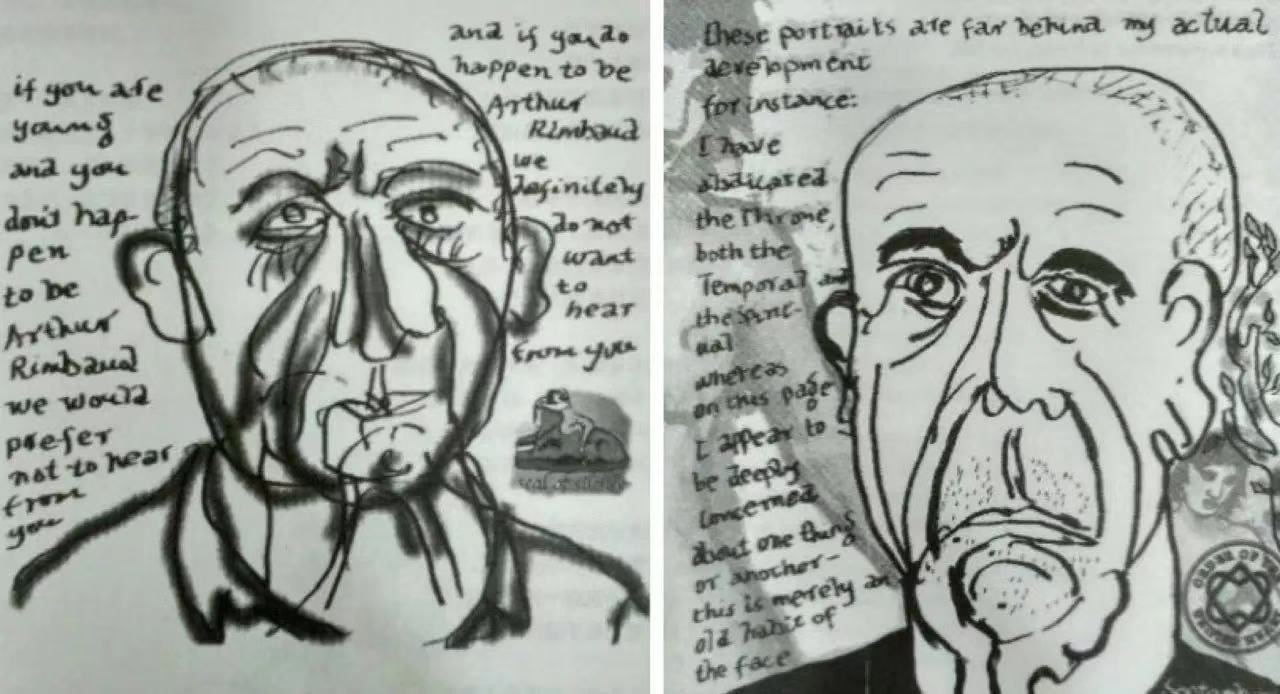 if you are
young
and you
don't hap-
pen
to be
Arthur
Rimbaud
we would
prefer
not to hear
from
you
and if you do
happen to be
Arthur
Rimbaud
we
definitely
do not
want
to
hear
from you
seal of silence
these portraits are far behind my actual
development
for instance:
I have
abdicated
the Throne,
both the
Temporal and
the Spirit-
ual
whereas
on this page
I appear to
be deeply
concerned
about one thing
or another-
this is merely an
old habit of
the face
ORDER OF THE